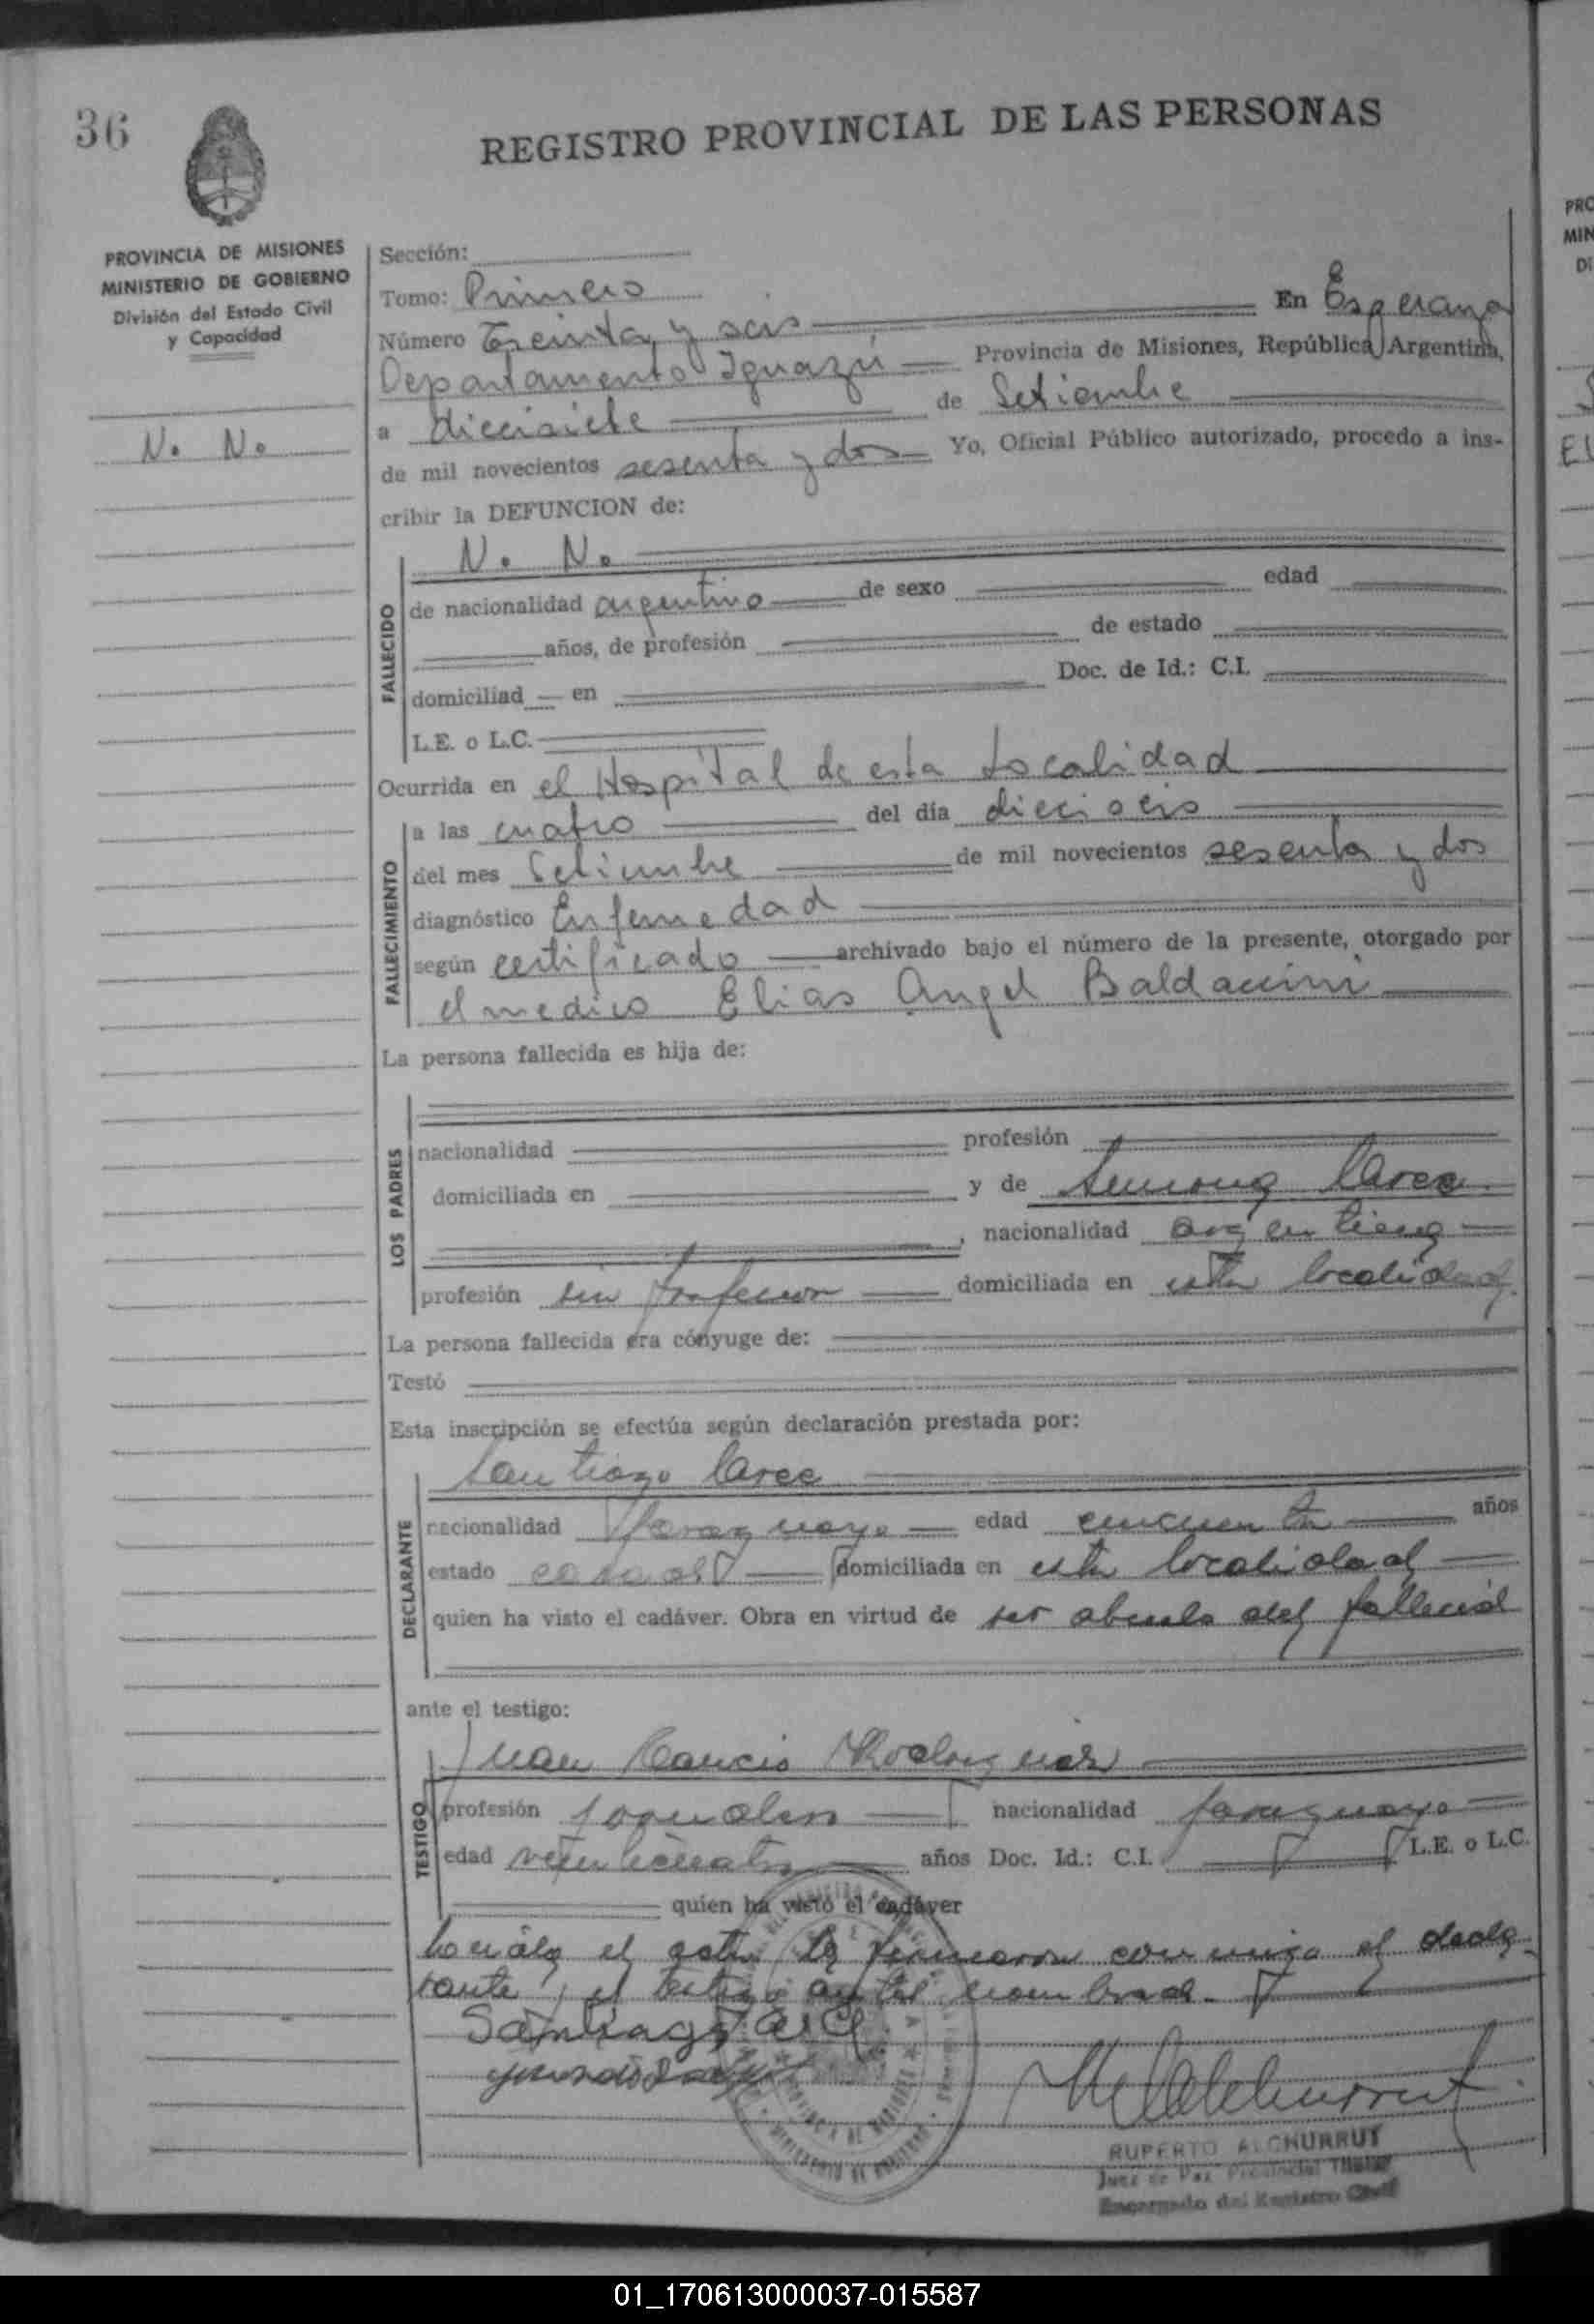 36
REGISTRO PROVINCIAL DE LAS PERSONAS
PROVINCIA DE MISIONES
MINISTERIO DE GOBIERNO
División del Estado Civil
y Capacidad
N. N.
Sección:
Tomo: Primero
Número Treinta y seis En Esperanza
Departamento Iguazú Provincia de Misiones, República Argentina,
a diecisiete de Setiembre
de mil novecientos sesenta y dos Yo, Oficial Público autorizado, procedo a ins-
cribir la DEFUNCION de:
FALLECIDO
N. N.
de nacionalidad argentino de sexo edad
años, de profesión de estado
domiciliad en Doc. de Id.: C.I.
L.E. o L.C.
Ocurrida en el Hospital de esta Localidad
FALLECIMIENTO
a las cuatro del día dieciseis
del mes Setiembre de mil novecientos sesenta y dos
diagnóstico Enfermedad
según certificado archivado bajo el número de la presente, otorgado por
el medico Elias Angel Baldaccini
La persona fallecida es hija de:
LOS PADRES
nacionalidad profesión
domiciliada en y de
, nacionalidad argentina
profesión sin profesion domiciliada en esta localidad
La persona fallecida era cónyuge de:
Testó
Esta inscripción se efectúa según declaración prestada por:
DECLARANTE
Santiago
nacionalidad Paraguayo edad cincuenta años
estado casado domiciliada en esta localidad
quien ha visto el cadáver. Obra en virtud de ser abuelo del fallecido
ante el testigo:
TESTIGO
Juan
profesión nacionalidad paraguayo
edad veinticuatro años Doc. Id.: C.I. L.E. o L.C.
quien ha visto el cadáver
el acta la firmaron conmigo el decla-
rante y el testigo
Santiago
RUPERTO ALCHURRUT
Juez de Paz Provincial Titular
Encargado del Registro Civil
PRO
MIN
01_170613000037-015587